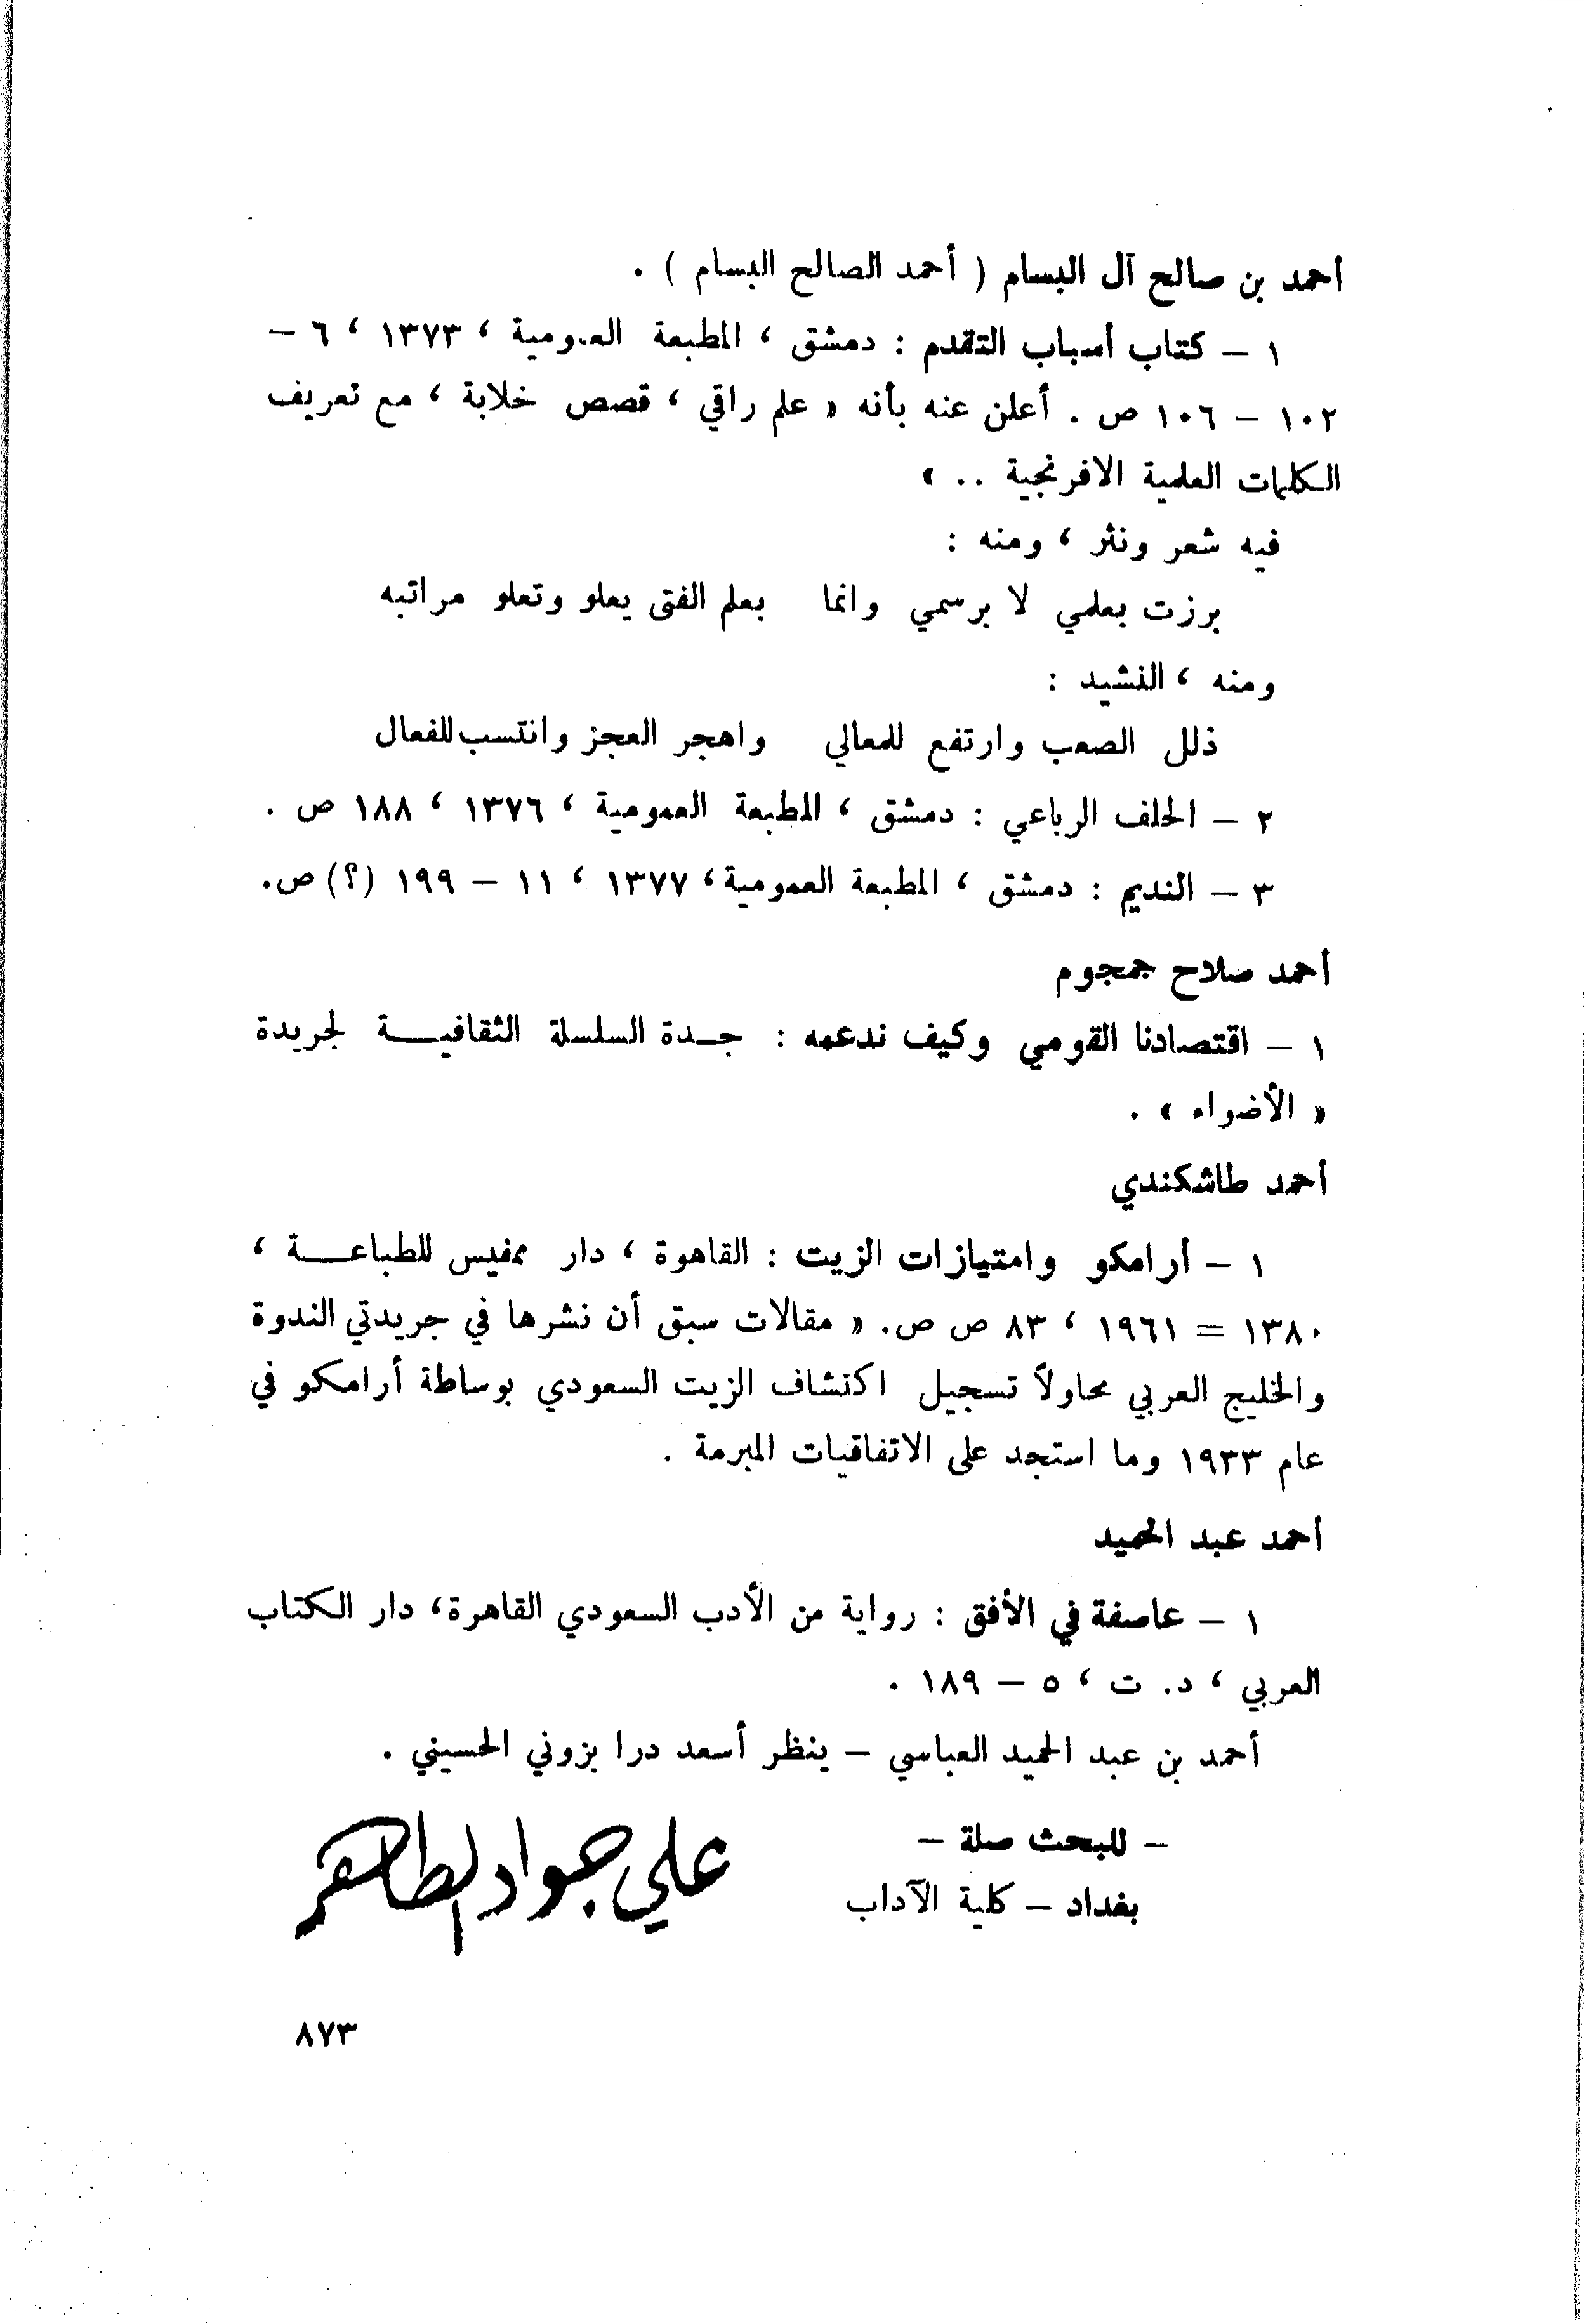 أحمد بن صالح آل البسام ( أحمد الصالح البسام ) .
١ – كتاب أسباب التقدم : دمشق ، المطبعة العمومية ، ١٣٧٣ ، ٦ –
١٠٢ – ١٠٦ ص . أعلن عنه بأنه « علم راقي ، قصص خلابة ، مع تعريف
الكلمات العلمية الافرنجية .. »
فيه شعر ونثر ، ومنه :
برزت بعلمي لا برسمي وانما بعلم الفتى يعلو وتعلو مراتبه
ومنه ، النشيد :
ذلل الصعب وارتفع للمعالي واهجر العجز وانتسب للفعال
٢ – الحلف الرباعي : دمشق ، المطبعة العمومية ، ١٣٧٦ ، ١٨٨ ص .
٣ – النديم : دمشق ، المطبعة العمومية ، ١٣٧٧ ، ١١ – ١٩٩ (؟) ص.
أحمد صلاح جمجوم
١ – اقتصادنا القومي وكيف ندعمه : جـدة السلسلة الثقافيـــة لجريدة
« الأضواء » .
أحمد طاشكندي
١ – أرامكو وامتيازات الزيت : القاهوة ، دار ممفيس للطباعـــة ،
١٣٨٠ = ١٩٦١ ، ٨٣ ص ص. « مقالات سبق أن نشرها في جريدتي الندوة
والخليج العربي محاولاً تسجيل اكتشاف الزيت السعودي بوساطة أرامكو في
عام ١٩٣٣ وما استجد على الاتفاقيات المبرمة .
أحمد عبد الحميد
١ – عاصفة في الأفق : رواية من الأدب السعودي القاهرة ، دار الكتاب
العربي ، د. ت ، ٥ – ١٨٩ .
أحمد بن عبد الحميد العباسي – ينظر أسعد درا بزوني الحسيني .
– للبحث صلة –
بغداد – كلية الآداب
علي جواد الطاهر
٨٧٣